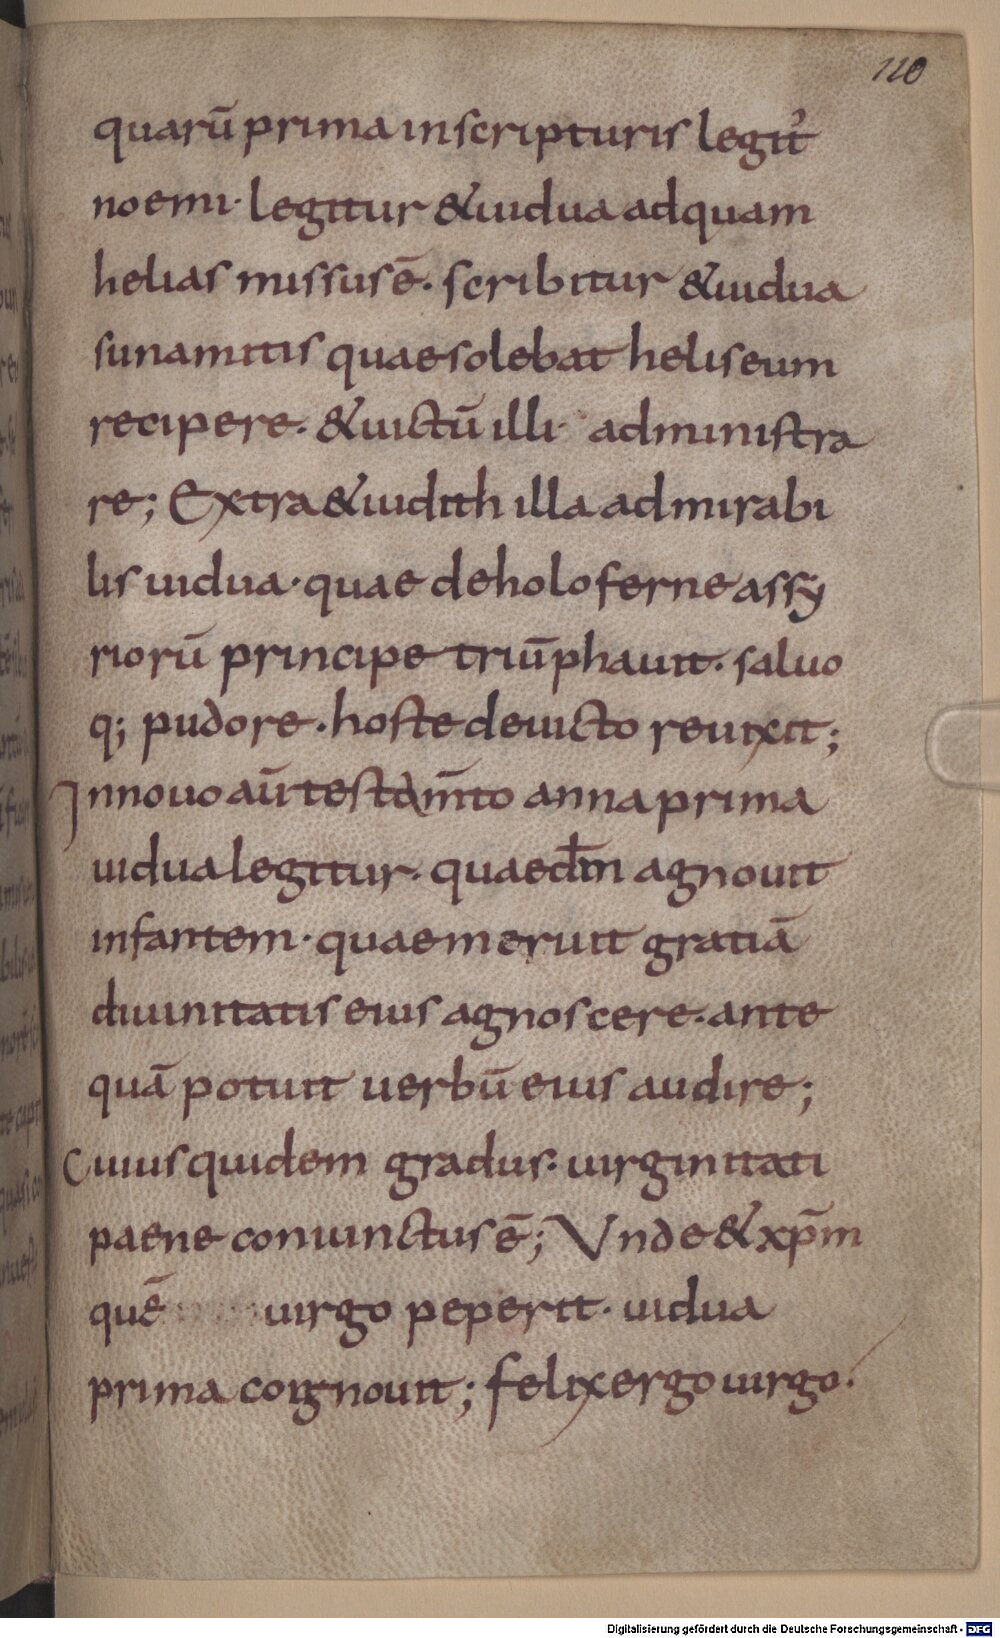 110
quarū prima in scripturis legit̓
noemi· legitur & uidua ad quam
helias missus ē· scribitur & uidua
sunamitis quae solebat heliseum
recipere· & uictū illi administra
re; Extra & iudith illa admirabi
lis uidua· quae de holoferne assy
riorū principe triūphauit· saluo
q; pudore· hoste deuicto reuixit;
In nouo aūt testam̄to anna prima
uidua legitur· quae dm̄ agnouit
infantem· quae meruit gratiā
diuinitatis eius agnoscere· ante
quā potuit uerbū eius audire;
Cuius quidem gradus· uirginitati
paene coniunctus ē; Vnde & xp̄m
quē uirgo peperit· uidua
prima coignouit; felix ergo uirgo·
Digitalisierung gefördert durch die Deutsche Forschungsgemeinschaft - DFG